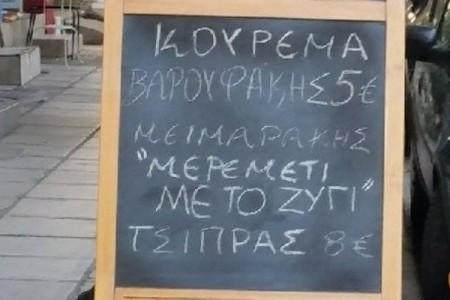 ΚΟΥΡΕΜΑ
ΒΑΡΟΥΦΑΚΗΣ 5€
ΜΕΙΜΑΡΑΚΗΣ
"ΜΕΡΕΜΕΤΙ
ΜΕ ΤΟ ΖΥΓΙ"
ΤΣΙΠΡΑΣ 8€